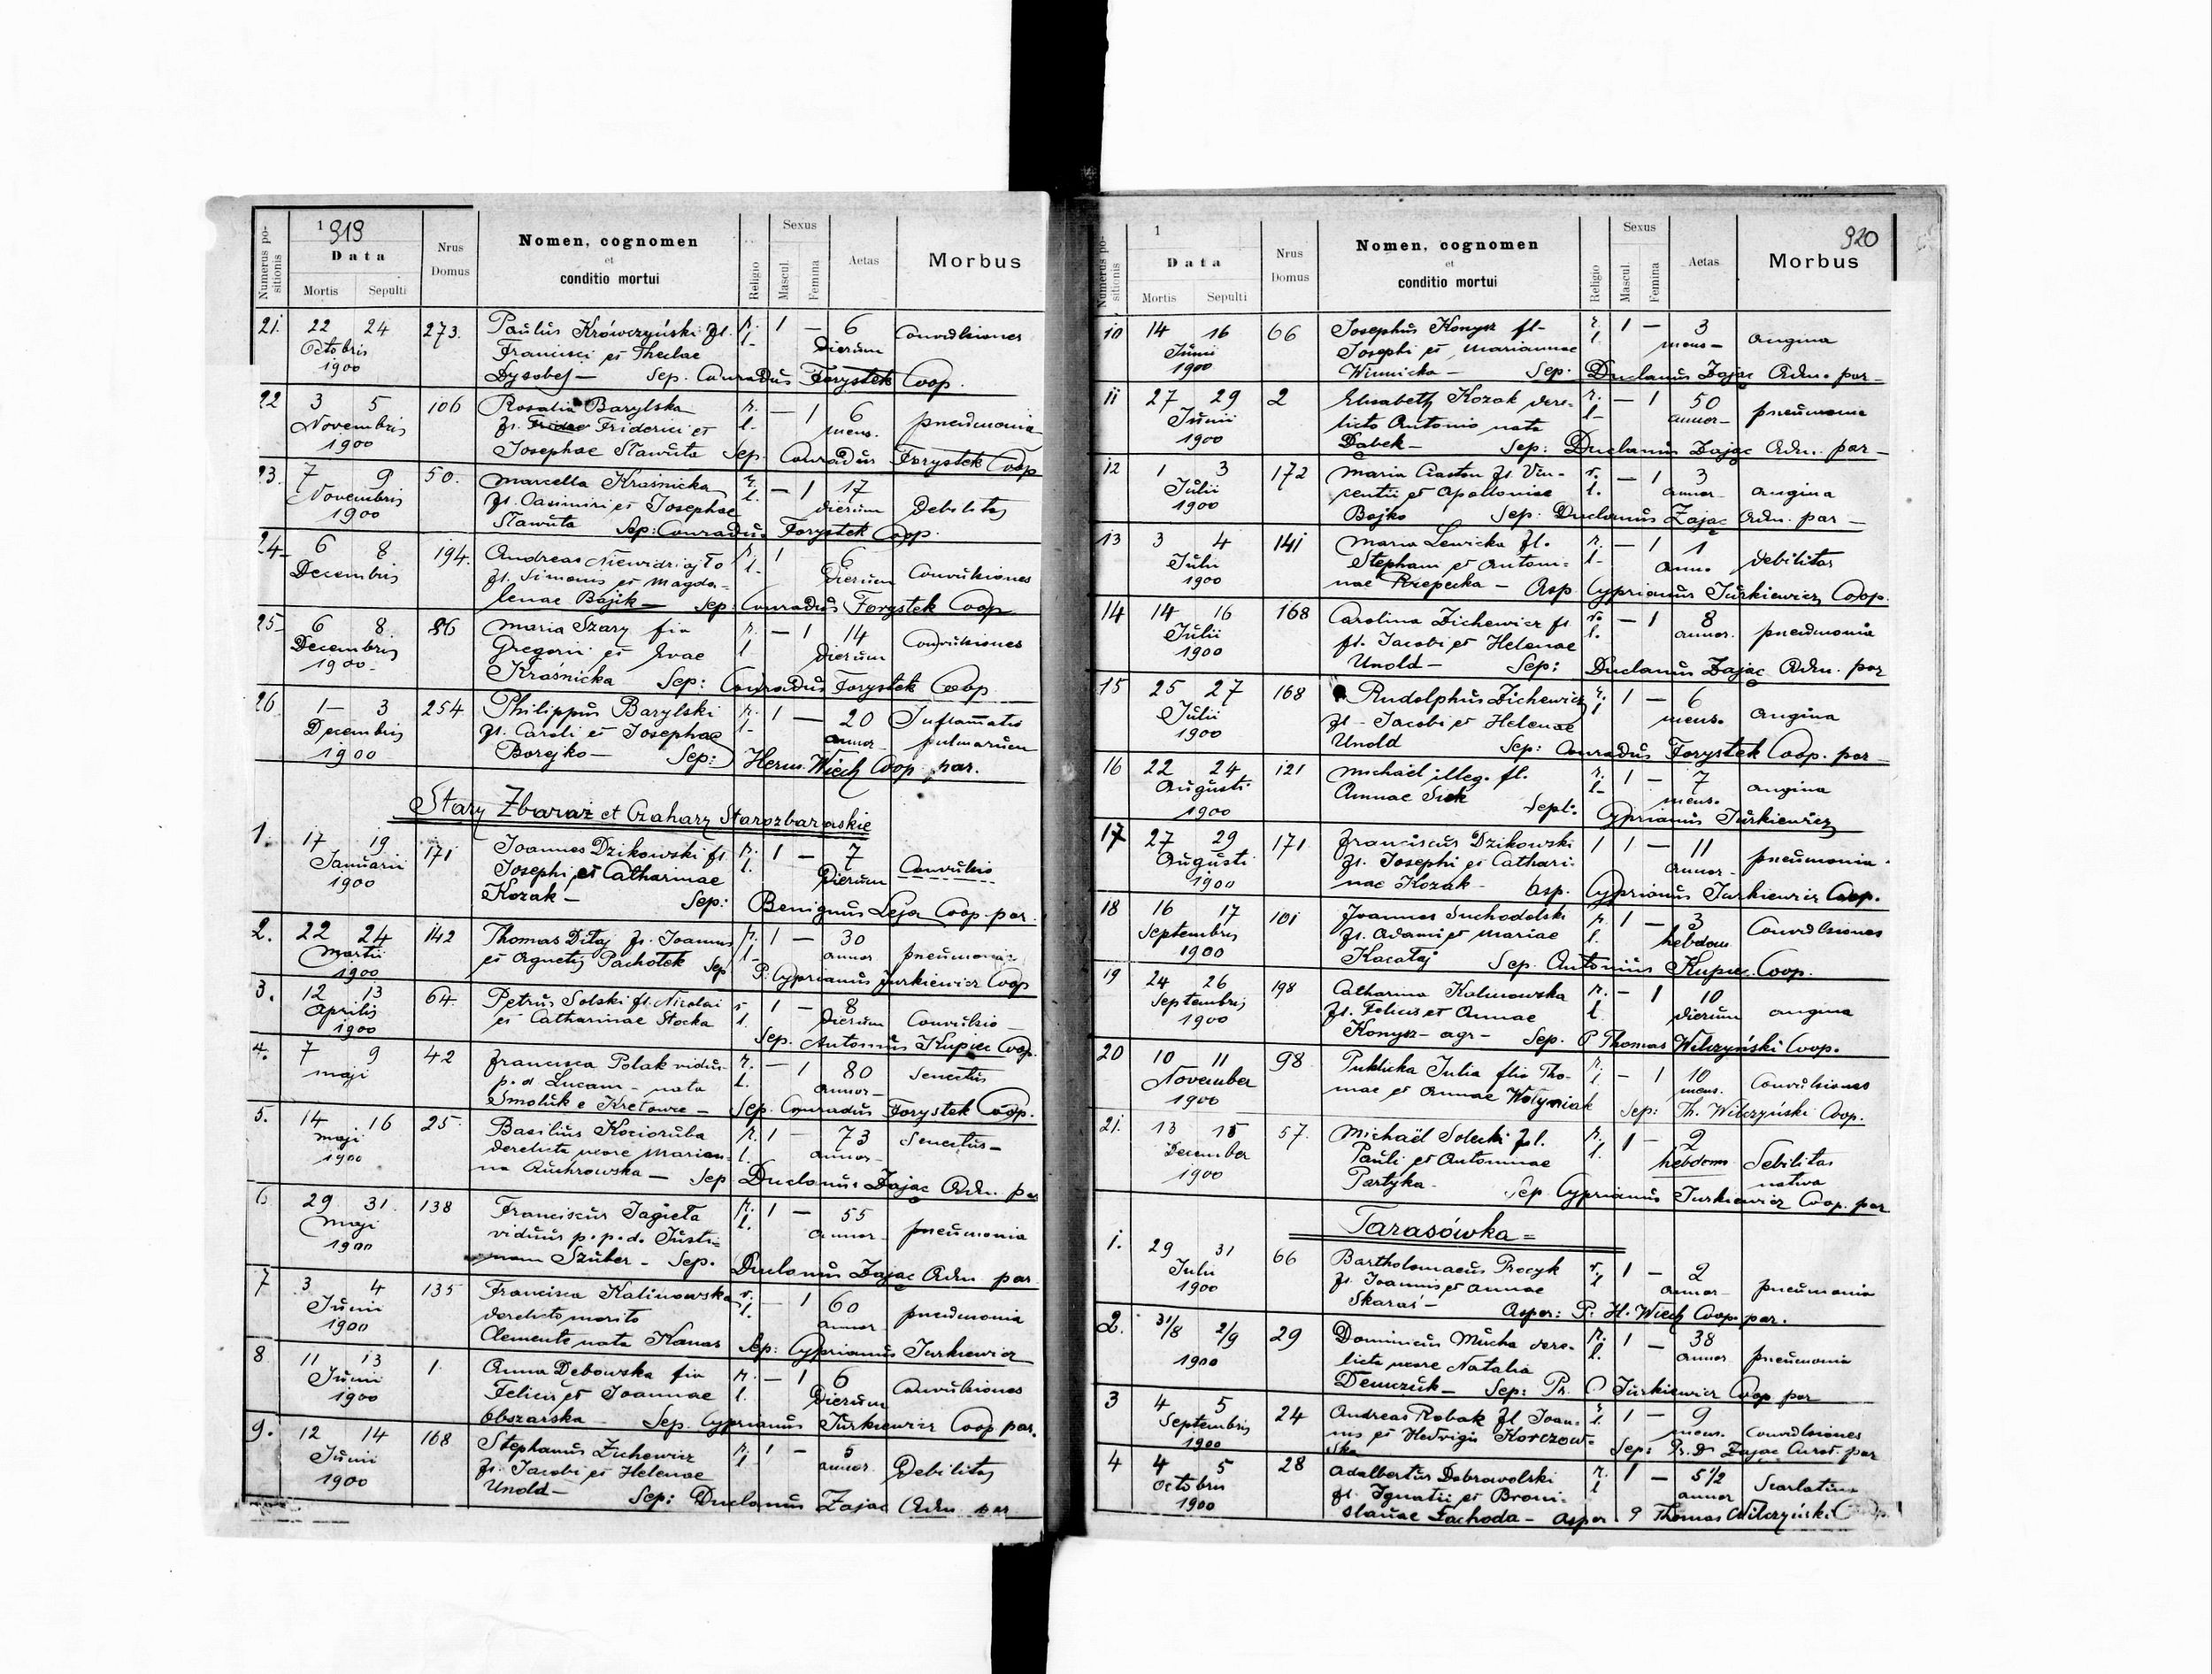 1919
Numerus positionis
Data
Mortis Sepulti
Nrus Domus
Nomen, cognomen
et
conditio mortui
Religio
Sexus
Mascul. Femina
Aetas
Morbus
21. 22 24 273. Paulus Krówczyński fl. r. 1 — 6 Convulsiones
Octobris Francisci et Theclae l. dierum
1900 Sep. Conradus Forystek Coop.
22 3 5 106 Rosalia Barylska r. — 1 6 pneumonia
Novembris fl. Friderici et l. mens.
1900 Josephae Sławuta Sep. Conradus Forystek Coop
23. 7 9 50. Marcella Kraśnicka r. — 1 17 Debilitas
Novembris fl. Casimiri et Josephae l. dierum
1900 Sławuta Sep: Conradus Forystek Coop.
24 6 8 194. Andreas r. 1 6 Convulsiones
Decembris fl. Simonis et Magda- l. dierum
lenae Bajik — Sep. Conradus Forystek Coop
25 6 8. 86 Maria Szary fia r. — 1 14 Convulsiones
Decembris Gregorii et Evae l dierum
1900 Kraśnicka Sep: Conradus Forystek Coop
26 1 — 3 254 Philippus Barylski r. 1 — 20 Inflamatio
Decembris fl. Caroli et Josephae l. annor pulmonum
1900 Boreyko — Sep: Herm. Wiech Coop. par.
Stary Zbaraż et Czahary Starozbaraskie
1. 17 19 171 Joannes Dzikowski fl. r. 1 — 7 Convulsio
Januarii Josephi et Catharinae l. dierum
1900 Kozak — Sep: Benignus Leja Coop. par.
2. 22 24 142 Thomas Ditaj fl. Joannis r. 1 — 30 pneumonia
Martii et Agnetis Pachołek Sep l. annor
1900 P. Cyprianus Jurkiewicz Coop
3. 12 13 64. Petrus Solski fl. Nicolai r 1 — 8 Convulsio
Aprilis et Catharinae Stocka l. dierum
1900 Sep. Antonius Kupiec Coop.
4. 7 9 42 Francisca Polak vidua r. — 1 80 Senectus
maji p. d Lucam — nata l. annor
Smoluk e Kretowce — Sep. Conradus Forystek Coop.
5. 14 16 25. Basilius Kocioruba r. 1 — 73 Senectus —
maji derelicta uxore Marian- l. annor
1900 na — Sep Duclanus Zając Adm. par
6 29 31. 138 Franciscus Jagieła r. 1 — 55 pneumonia
maji viduus p. p. d. Justi- l. annor
1900 nam Szuber — Sep. Duclanus Zając Adm. par.
7 3 4 135 Francisca Kalinowska r. — 1 60 pneumonia
Junii derelicto marito l. annor
1900 Clemente nata Kanas Sep: Cyprianus Jurkiewicz
8 11 13 1. Anna Debowska fia r. — 1 6 Convulsiones
Junii Felicis et Joannae l. dierum
1900 Obszarska — Sep. Cyprianus Jurkiewicz Coop par.
9. 12 14 168 Stephanus Zichewicz r. 1 — 5 Debilitas
Junii fl. Jacobi et Helenae l. annor.
1900 Unold — Sep: Duclanus Zając Adm. par
1 920
Numerus positionis
Data
Mortis Sepulti
Nrus Domus
Nomen, cognomen
et
conditio mortui
Religio
Sexus
Mascul. Femina
Aetas
Morbus
10 14 16 66 Josephus Konysz fl- r. 1 — 3 angina
Junii Josephi et Mariannae l. mens —
1900 Winnicka — Sep. Duclanus Zając Adm. par —
11 27 29 2 Elisabeth Kozak dere- r. — 1 50 pneumonia
Junii licto Antonio nata l. annor —
1900 Dąbek — Sep: Duclanus Zając Adm. par —
12 1 3 172 Maria Ciaston fl. Vin- r. — 1 3 angina
Julii centii et Apolloniae l. annor
1900 Bojko Sep. Duclanus Zając Adm. par —
13 3 4 141 Maria Lewicka fl. r. — 1 1 debilitas
Julii Stephani et Antoni- l. ann.
1900 nae Przepecka — Asp. Cyprianus Jurkiewicz Coop.
14 14 16 168 Carolina Zichewicz fl r. — 1 8 pneumonia
Julii fl. Jacobi et Helenae l. annor.
1900 Unold — Sep: Duclanus Zając Adm. par
15 25 27 168 Rudolphus Zichewicz r. 1 — 6 angina
Julii fl — Jacobi et Helenae l mens.
1900 Unold Sep: Conradus Forystek Coop. par —
16 22 24 121 Michaël illeg. fl. r. 1 — 7 angina
Augusti Annae Suk l. mens.
1900 Sepl: Cyprianus Jurkiewicz
17 27 29 171 Franciscus Dzikowski 1 1 — 11 pneumonia.
Augusti fl. Josephi et Cathari- annor
1900 nae Kozak — Asp. Cyprianus Jurkiewicz Coop.
18 16 17 101 Joannes Suchodolski r. 1 — 3 Convulsiones
Septembris fl. Adami et Mariae l. hebdom.
1900 Kacataj Sep. Antonius Kupiec. Coop.
19 24 26 198 Catharina Kalinowska r. — 1 10 angina
Septembris fl. Felicis et Annae l. dierum
1900 Konysz — agr — Sep. P Thomas Wilczyński Coop.
20 10 11 98 Puklicka Julia filia Tho- r. — 1 10 Convulsiones
November mae et Annae Wołyniak l. mens.
1900 Sep: Th. Wilczyński Coop.
21. 13 15 57. Michaël Solecki fl. r. 1 — 2 Debilitas
December Pauli et Antoninae l. hebdom nativa
1900 Partyka. Sep. Cyprianus Jurkiewicz Coop. par
Tarasówka =
1. 29 31 66 Bartholomaeus Procyk r. 1 — 2 pneumonia
Julii fl. Joannis et Annae l annor
1900 Skaraś — Aspor: P. H. Wiech Coop. par.
2. 31/8 2/9 29 Dominicus Mucha dere- r. 1 — 38 pneumonia
1900 licta uxore Natalia l. annor
Demczuk — Sep: Pr. C Jurkiewicz Coop par
3 4 5 24 Andreas Robak fl Joan- r. 1 — 9 Convulsiones
Septembris nis et Hedvigis Korczow- l. mens.
1900 ska Sep: Pr. D Zając Curat. par
4 4 5 28 Adalbertus Dobrowolski r. 1 — 5 1/2 Scarlatina
Octobris fl. Ignatii et Broni- l annor
1900 slauae Lachoda — Aspor. P Thomas Wilczyński